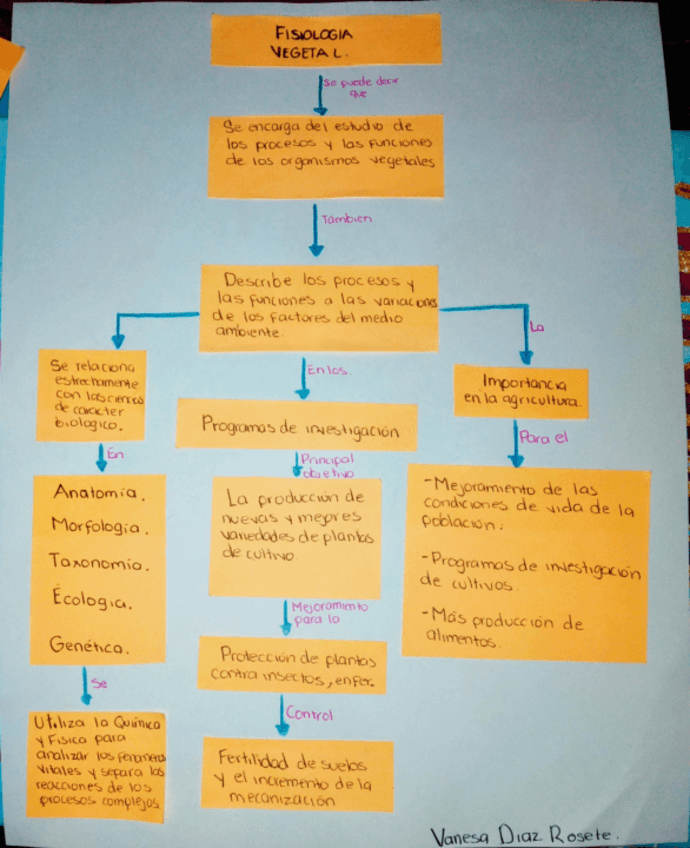 FISIOLOGIA
VEGETAL.
Se puede decir
que
Se encarga del estudio de
los procesos y las funciones
de los organismos vegetales
Tambien
Describe los procesos y
las funciones a las variaciones
de los factores del medio
ambiente.
Se relaciona
estrechamente
con las ciencias
de carácter
biologico.
En
Anatomía.
Morfología.
Taxonomía.
Écología.
Genética.
Se
Utiliza la Química
y Física para
analizar los fenomenos
vitales y separa las
reacciones de los
procesos complejos
En los
Programas de investigación
Principal
objetivo
La producción de
nuevas y mejores
variedades de plantas
de cultivo.
Mejoramiento
para la
Protección de plantas
contra insectos, enfer.
Control
Fertilidad de suelos
y el incremento de la
mecanización
La
Importancia
en la agricultura.
Para el
-Mejoramiento de las
condiciones de vida de la
población.
-Programas de investigación
de cultivos.
-Más producción de
alimentos.
Vanesa Diaz Rosete.